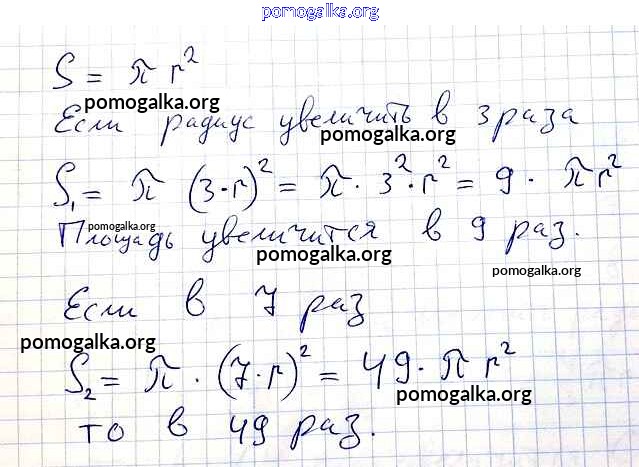 pomogalka.org
S = π r²
pomogalka.org
Если радиус увеличить в 3 раза
pomogalka.org
S₁ = π (3·r)² = π · 3² · r² = 9 · π r²
pomogalka.org
Площадь увеличится в 9 раз.
pomogalka.org
pomogalka.org
Если в 7 раз
pomogalka.org
S₂ = π · (7·r)² = 49 · π r²
pomogalka.org
то в 49 раз.